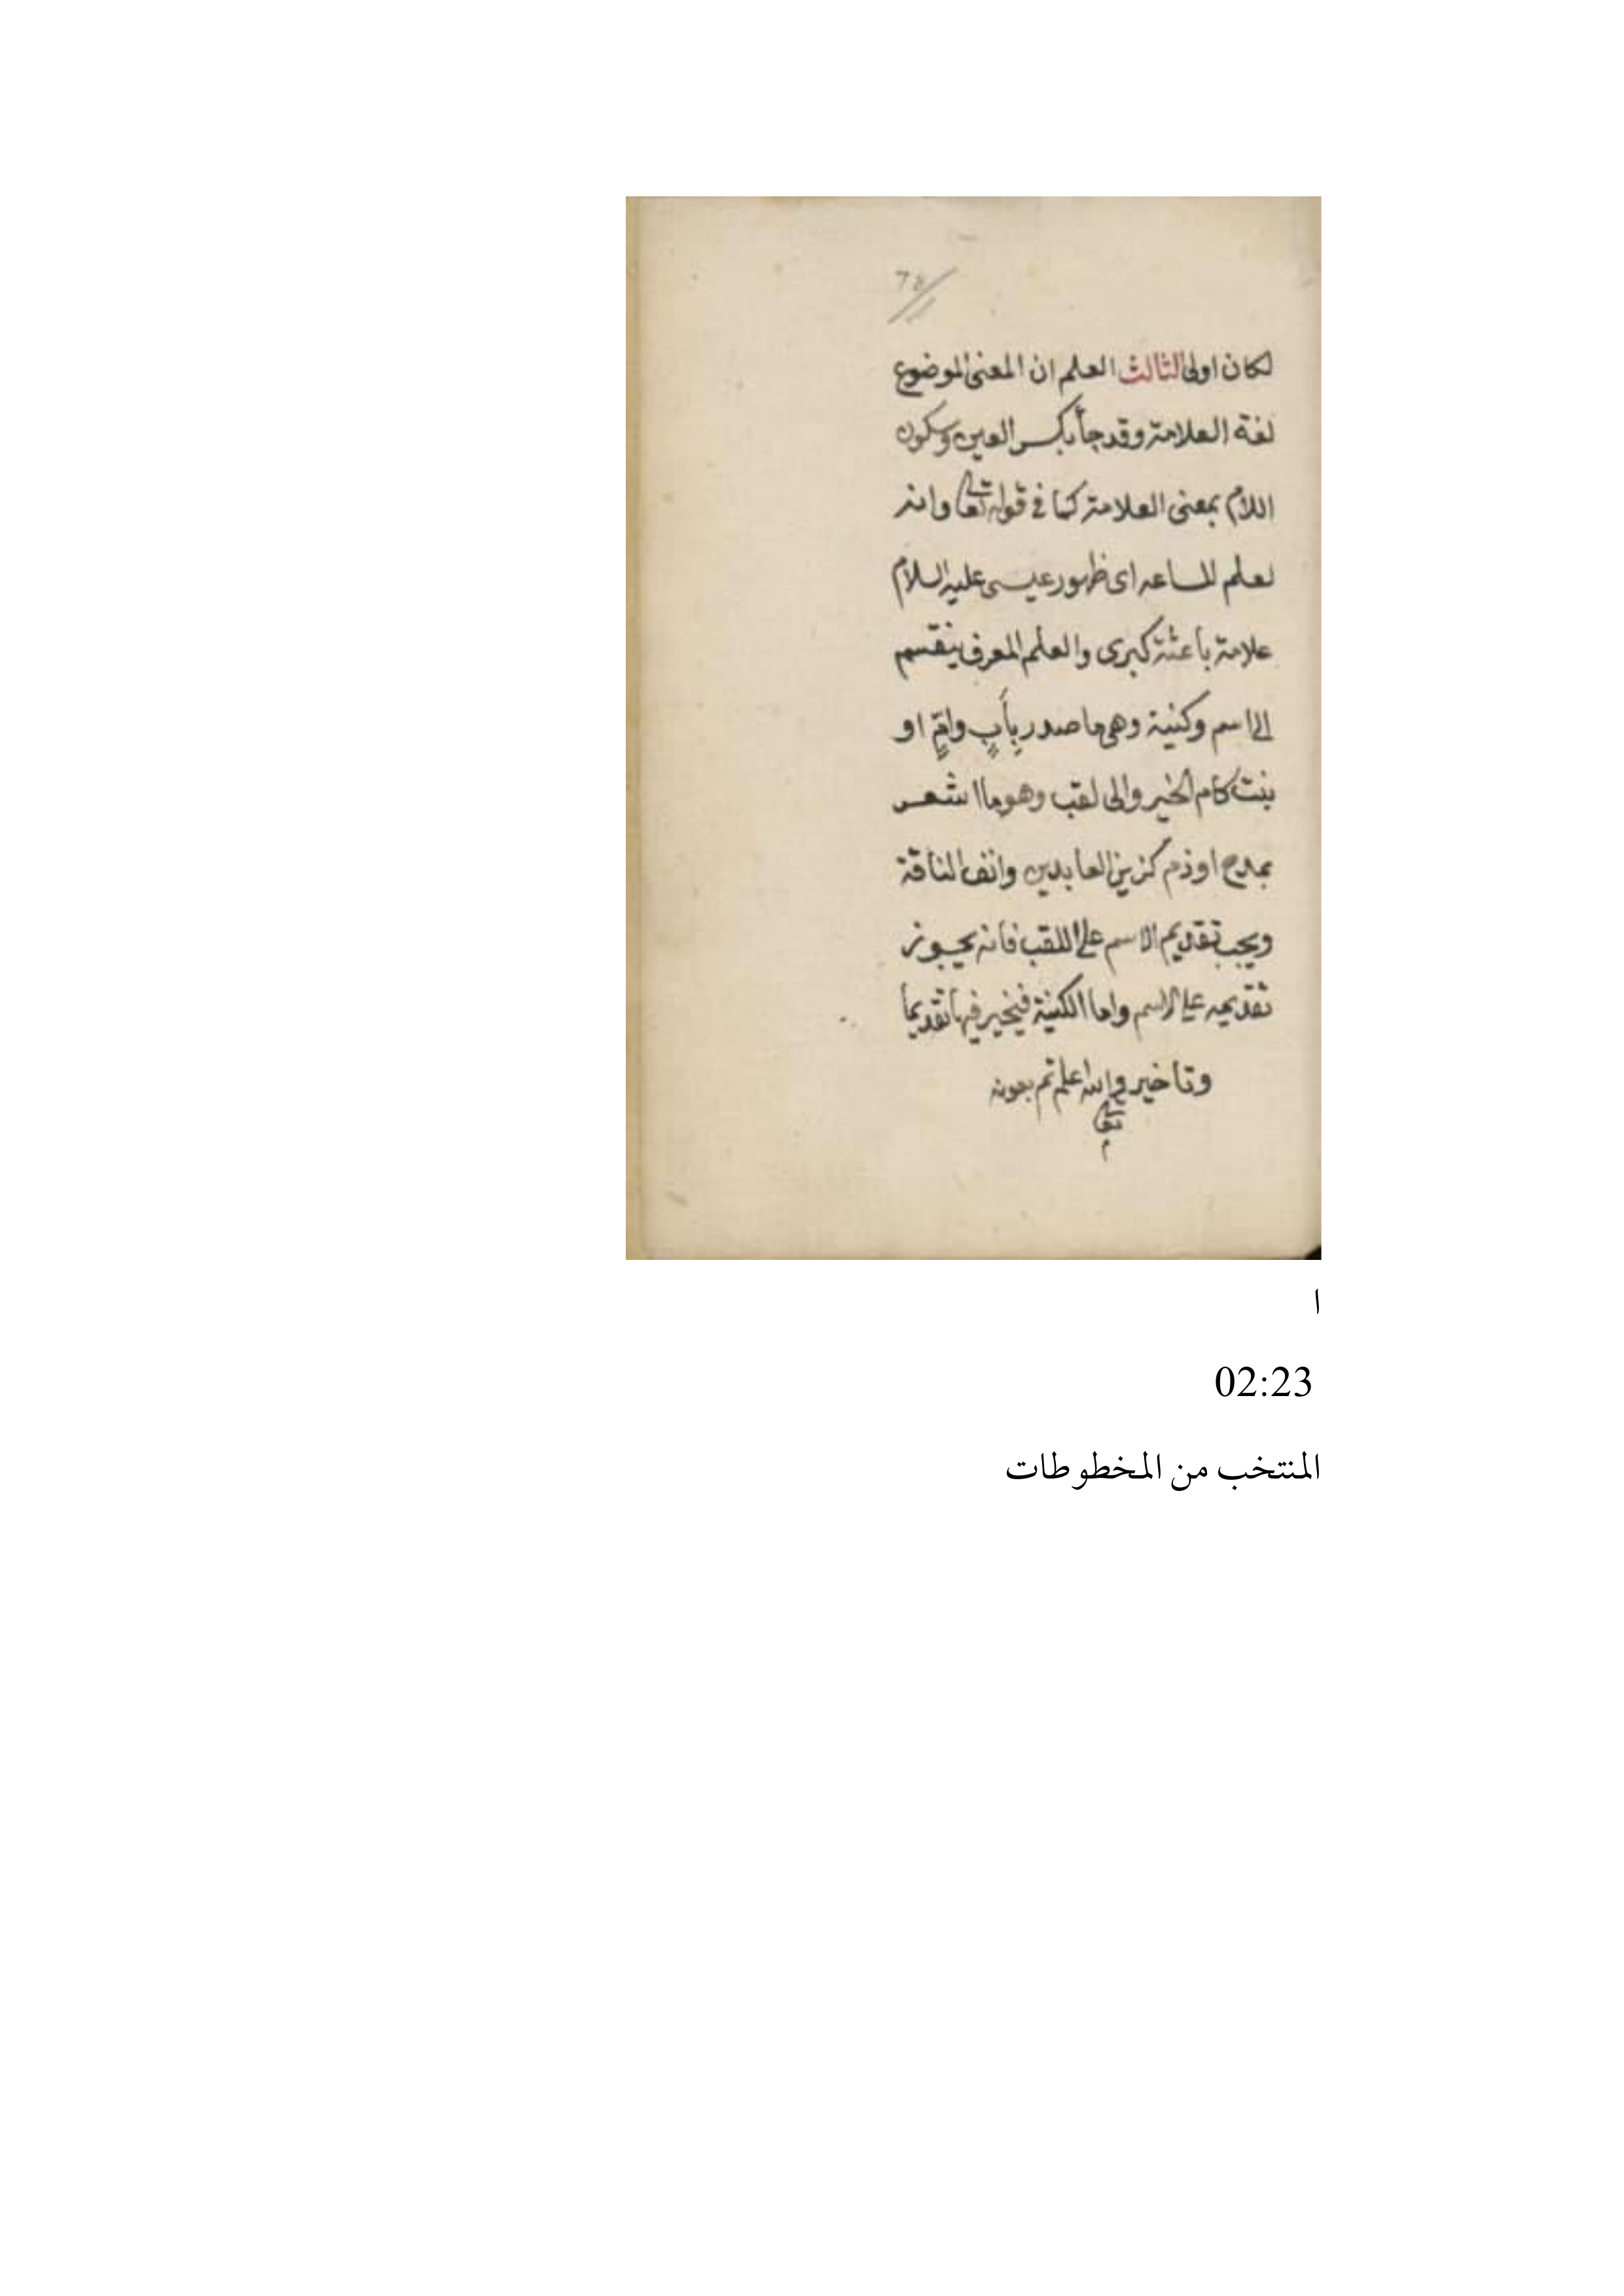 لكان اولى الثالث العلم ان المعنى الموضوع
لغة العلامة وقد جأ بكسر العين وسكون
اللام بمعنى العلامة كما في قوله تعالى وانه
لعلم للساعه اى ظهور عيسى عليه السلام
علامة باعثة كبرى والعلم المعرف ينقسم
الى اسم وكنية وهى ما صدر بِأَبٍ وامٍّ او
بنت كام الخير والى لقب وهو ما اشعر
بمدح او ذم كزين العابدين وانف الناقة
ويجب تقديم الاسم على اللقب فانه يجوز
تقديمه على الاسم واما الكنية فيخير فيها تقديما
وتاخير والله اعلم تم بعونه
تعالى
م
ا
02:23
المنتخب من المخطوطات